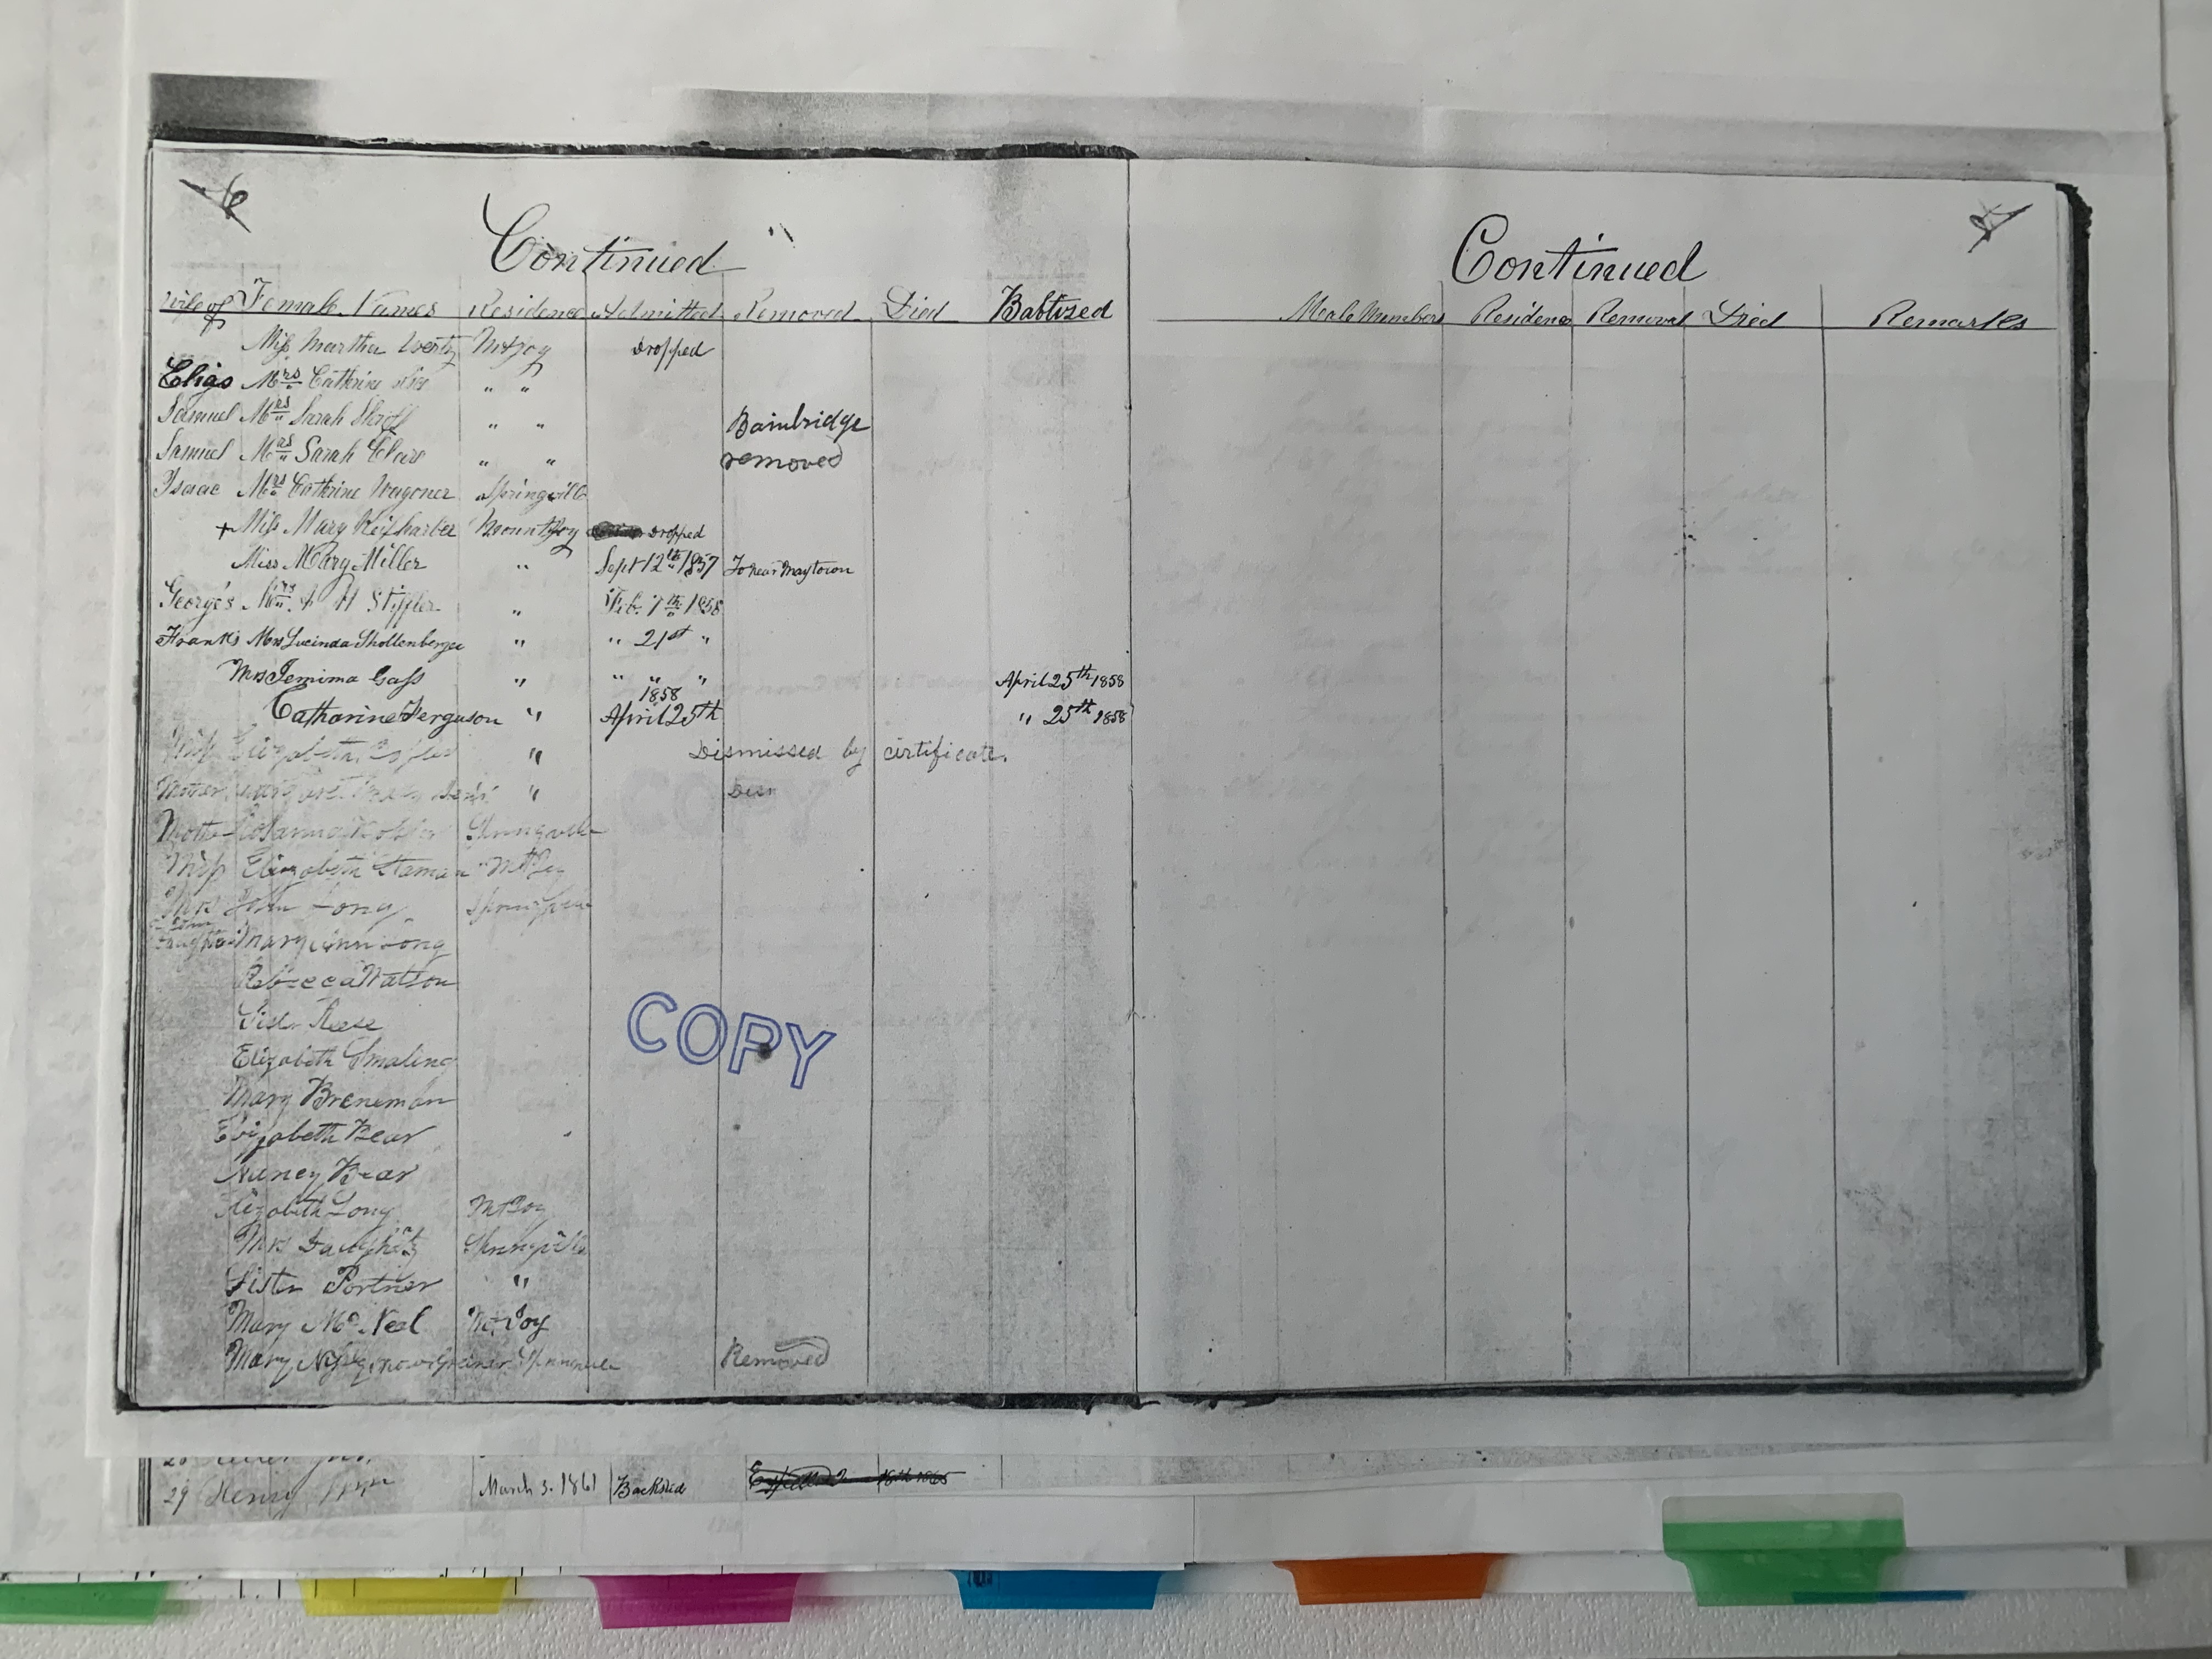 Continued
Wife of Female Names Residence Admitted Removed Died Babtised
Miss Martha Wertz Mt Joy Dropped
Eligs Mrs Cathrine " "
Samuel Mrs Sarah " " Bainbridge
Samuel Mrs Sarah " " removed
Isaac Mrs Cathrine Wagoner Springville
+ Miss Mary Mount Joy Dropped
Miss Mary Miller " Sept 12th 1857 To near Maytown
George's Mrs H Stiffler " Feb. 7th 1858
Frank's Mrs Lucinda Shollenberger " " 21st "
Mrs Jemima Gass " " " " April 25th 1858
1858
Catharine Ferguson " April 25th " 25th 1858
Miss Elizabeth " Dismissed by certificate.
Mother "
Mother Springville
Miss Elizabeth Staman Mt Joy
Mrs John Long Springville
Mary Ann Long
Rebecca Watson
Reese
Elizabeth Smaling
Mary Breneman
Elizabeth Bear
Nancy Bear
Elizabeth Long Mt Joy
Mrs Springville
Sister Portner "
Mary McNeal Mt Joy
Mary now Greiner Springville Removed
Continued
Male Members Residence Removal Died Remarks
COPY
29 Henry March 3. 1861 Backslid